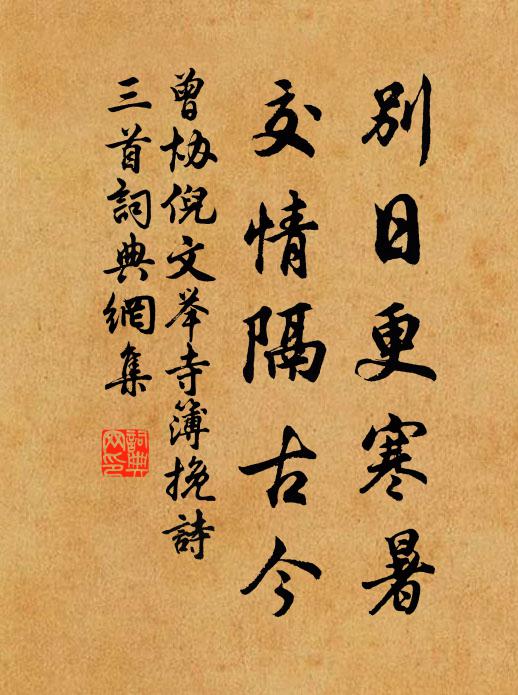 別日更寒暑
交情隔古今
曾協倪文举寺簿挽詩
三首詞典網集
詞典網印